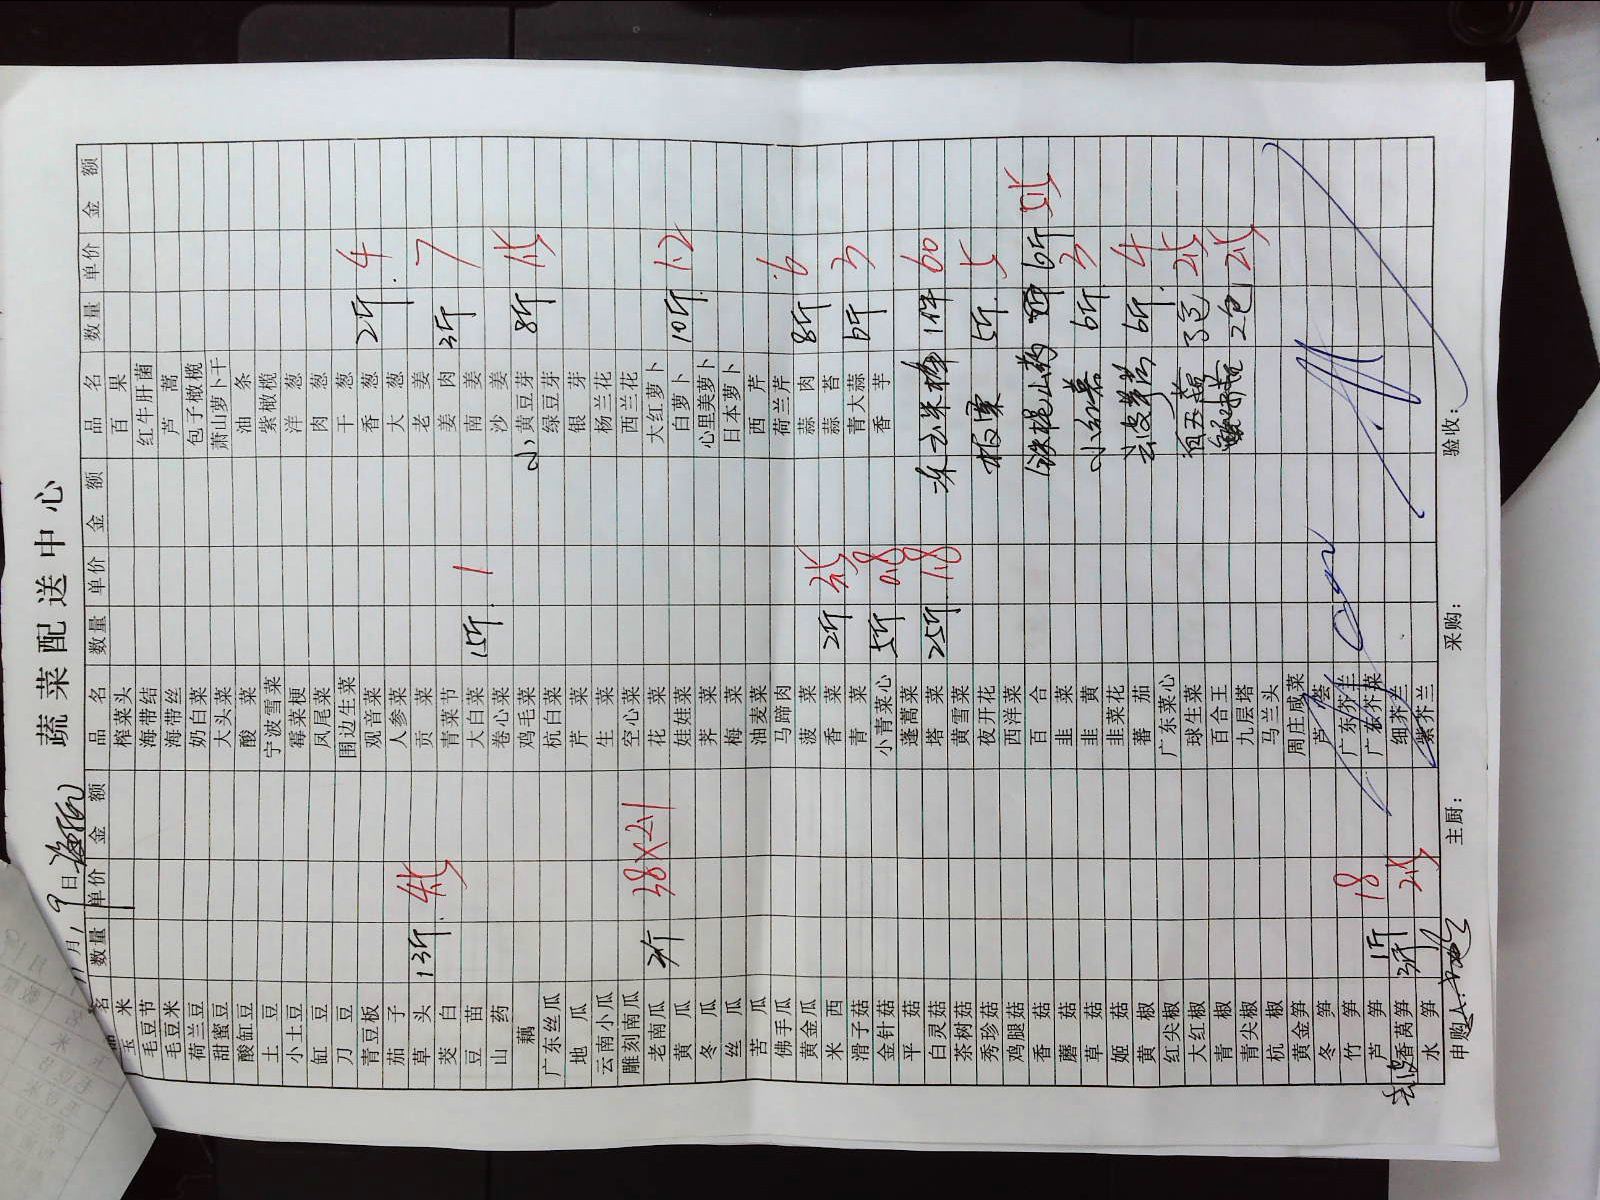 蔬菜配送中心
11月9日
品名 数量 单价 金额 品名 数量 单价 金额 品名 数量 单价 金额
玉米 榨菜头 百果
毛豆节 海带结 红牛肝菌
毛豆米 海带丝 芦蒿
荷兰豆 奶白菜 包子橄榄
甜蜜豆 大头菜 萧山萝卜干
酸缸豆 酸菜 油条
土豆 宁波雪菜 紫橄榄
小土豆 霉菜梗 洋葱
缸豆 凤尾菜 肉葱
刀豆 围边生菜 干葱
青豆板 观音菜 香葱 2斤 4
茄子 人参菜 大葱
草头 13斤 4.5 贡菜 老姜
茭白 青菜节 姜肉 3斤 7
豆苗 大白菜 15斤 1 南姜
山药 卷心菜 沙姜
藕 鸡毛菜 小黄豆芽 8斤 1.5
广东丝瓜 杭白菜 绿豆芽
地瓜 芹菜 银芽
云南小瓜 生菜 杨兰花
雕刻南瓜 空心菜 西兰花
老南瓜 38×2.1 花菜 大红萝卜
黄瓜 娃娃菜 白萝卜 10斤 1.2
冬瓜 荠菜 心里美萝卜
丝瓜 梅菜 日本萝卜
苦瓜 油麦菜 西芹
佛手瓜 马蹄肉 荷兰芹
黄金瓜 菠菜 蒜肉 8斤 6
米西 香菜 2斤 蒜苔
滑子菇 青菜 青大蒜 6斤 3
金针菇 小青菜心 5斤 0.8 香芋
平菇 蓬蒿菜
白灵菇 塔菜 25斤 1.8 玉米棒 1件 60
茶树菇 黄雪菜
秀珍菇 夜开花 板栗 5斤 5
鸡腿菇 西洋菜
香菇 百合 铁棍山药 6斤 5.5
蘑菇 韭菜
草菇 韭黄 小红薯 6斤 3
姬菇 韭菜花
黄椒 蕃茄 去皮芋艿 6斤 4
红尖椒 广东菜心
大红椒 球生菜 3包 2.5
青椒 百合王
青尖椒 九层塔 2包 2.5
杭椒 马兰头
黄金笋 周庄咸菜
冬笋 芦荟
竹笋 广东芥兰
芦笋 1斤 18 广东芥菜
去皮香莴笋 3斤 2.5 细芥兰
水笋 紫芥兰
申购人: 主厨: 采购: 验收: